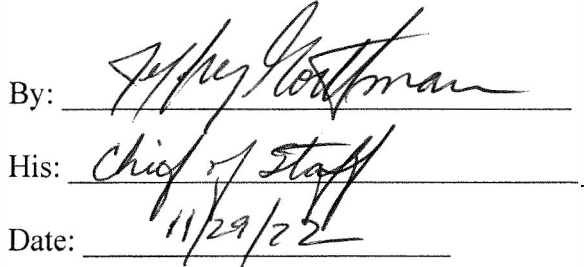 By: Jeffrey
His: Chief of Staff
Date: 11/29/22